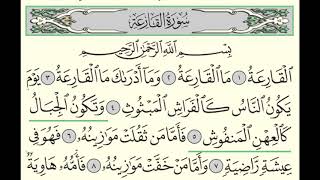 سُورَةُ الْقَارِعَةِ
بِسْمِ اللَّهِ الرَّحْمَٰنِ الرَّحِيمِ
الْقَارِعَةُ ١ مَا الْقَارِعَةُ ٢ وَمَا أَدْرَاكَ مَا الْقَارِعَةُ ٣ يَوْمَ
يَكُونُ النَّاسُ كَالْفَرَاشِ الْمَبْثُوثِ ٤ وَتَكُونُ الْجِبَالُ
كَالْعِهْنِ الْمَنفُوشِ ٥ فَأَمَّا مَن ثَقُلَتْ مَوَازِينُهُ ٦ فَهُوَ فِي
عِيشَةٍ رَّاضِيَةٍ ٧ وَأَمَّا مَنْ خَفَّتْ مَوَازِينُهُ ٨ فَأُمُّهُ هَاوِيَةٌ